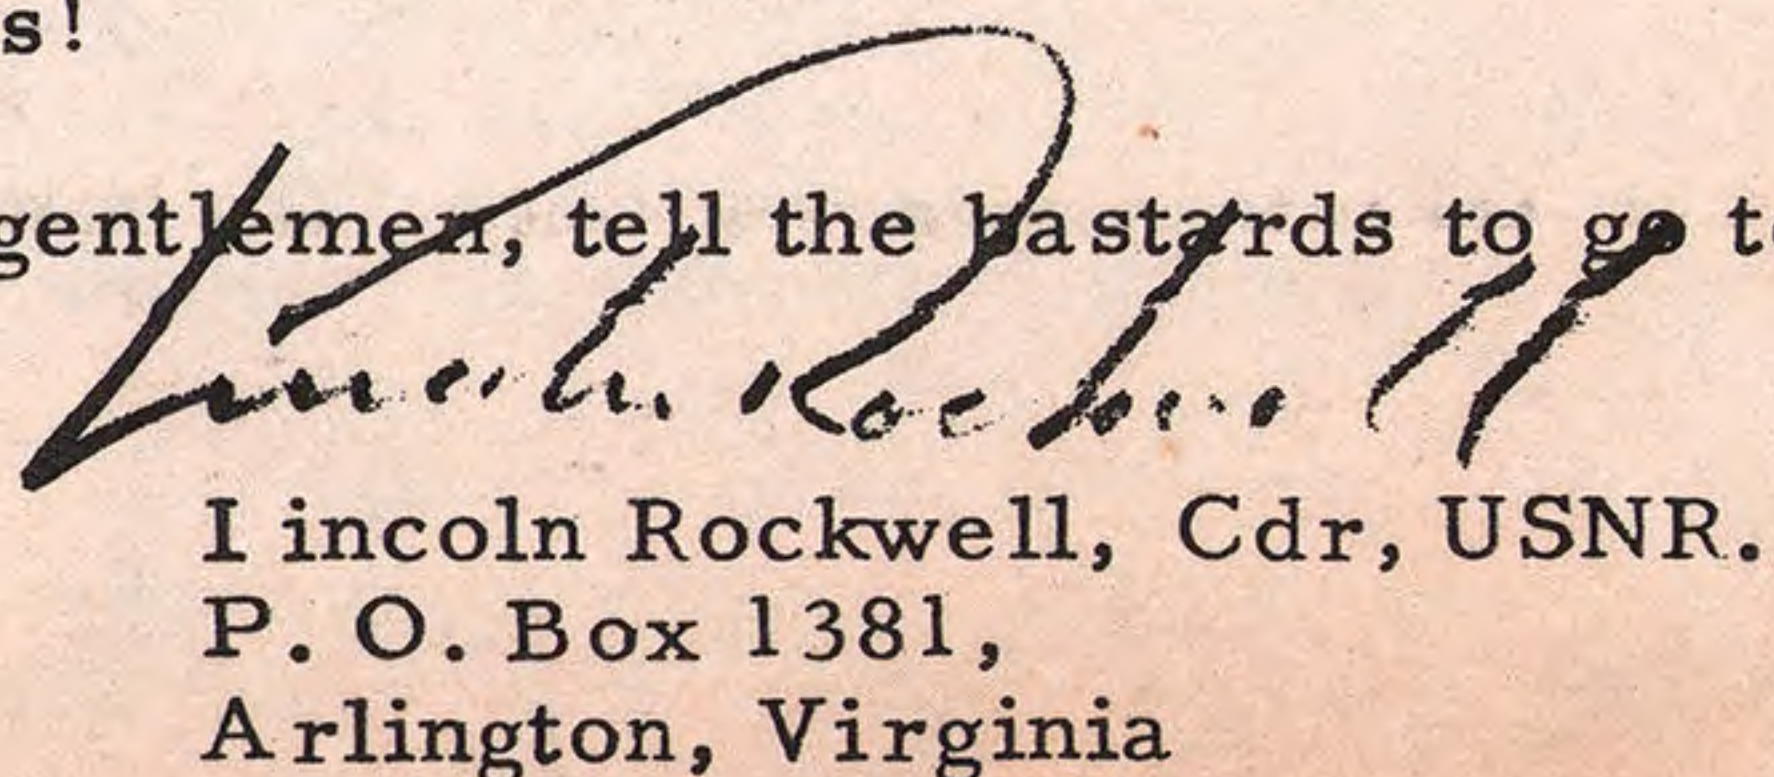 s!
gentlemen, tell the bastards to go to
Lincoln Rockwell
Lincoln Rockwell, Cdr, USNR.
P. O. Box 1381,
Arlington, Virginia